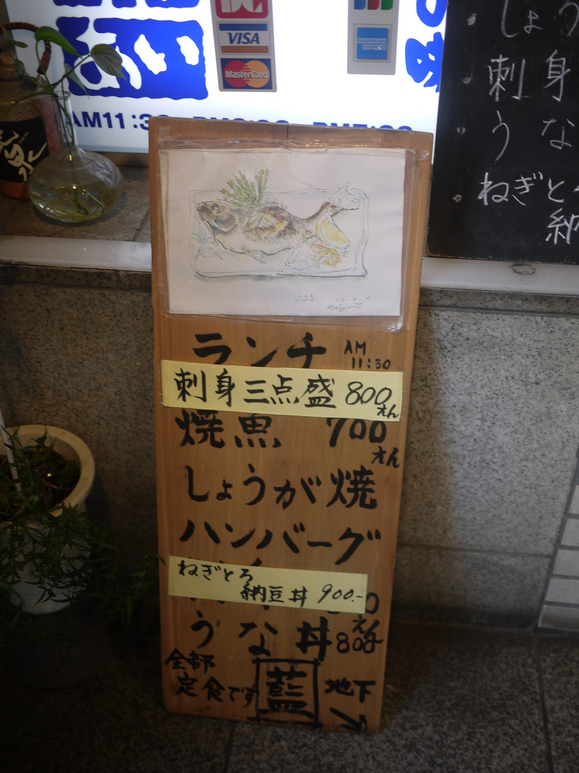 VISA
MasterCard
AMERICAN EXPRESS
AM11:30
ランチ AM 11:30
刺身三点盛 800えん
焼魚 700えん
しょうが焼
ハンバーグ
ねぎとろ
納豆丼 900.-
うな丼 800えん
全部
定食です
藍
地下
しょう
刺身
うな
ねぎと
納